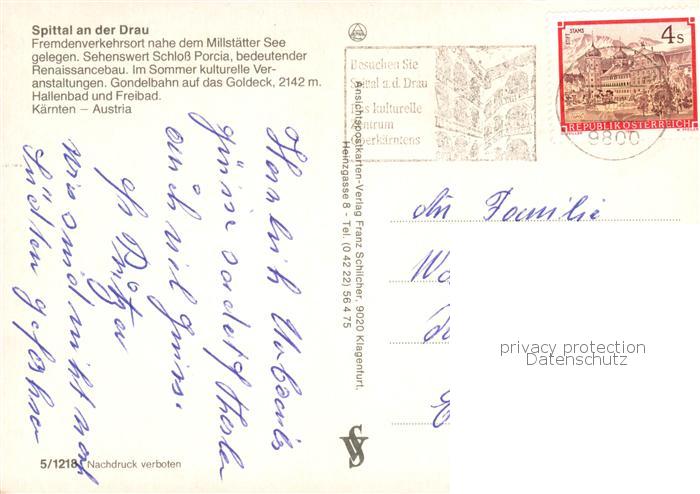 Spittal an der Drau
Fremdenverkehrsort nahe dem Millstätter See
gelegen. Sehenswert Schloß Porcia, bedeutender
Renaissancebau. Im Sommer kulturelle Ver-
anstaltungen. Gondelbahn auf das Goldeck, 2142 m.
Hallenbad und Freibad.
Kärnten – Austria
Besuchen Sie
Spittal a.d. Drau
das kulturelle
Zentrum
Oberkärntens
STIFT STAMS
4 s
REPUBLIK ÖSTERREICH
9800
Ansichtspostkarten-Verlag Franz Schilcher, 9020 Klagenfurt.
Heinzgasse 8 - Tel. (0 42 22) 56 4 75
Herzlich Urlaubs
grüsse sendet
auch viel
wir sind nicht nach
Süden gefahren
An Familie
privacy protection
Datenschutz
5/1218 Nachdruck verboten